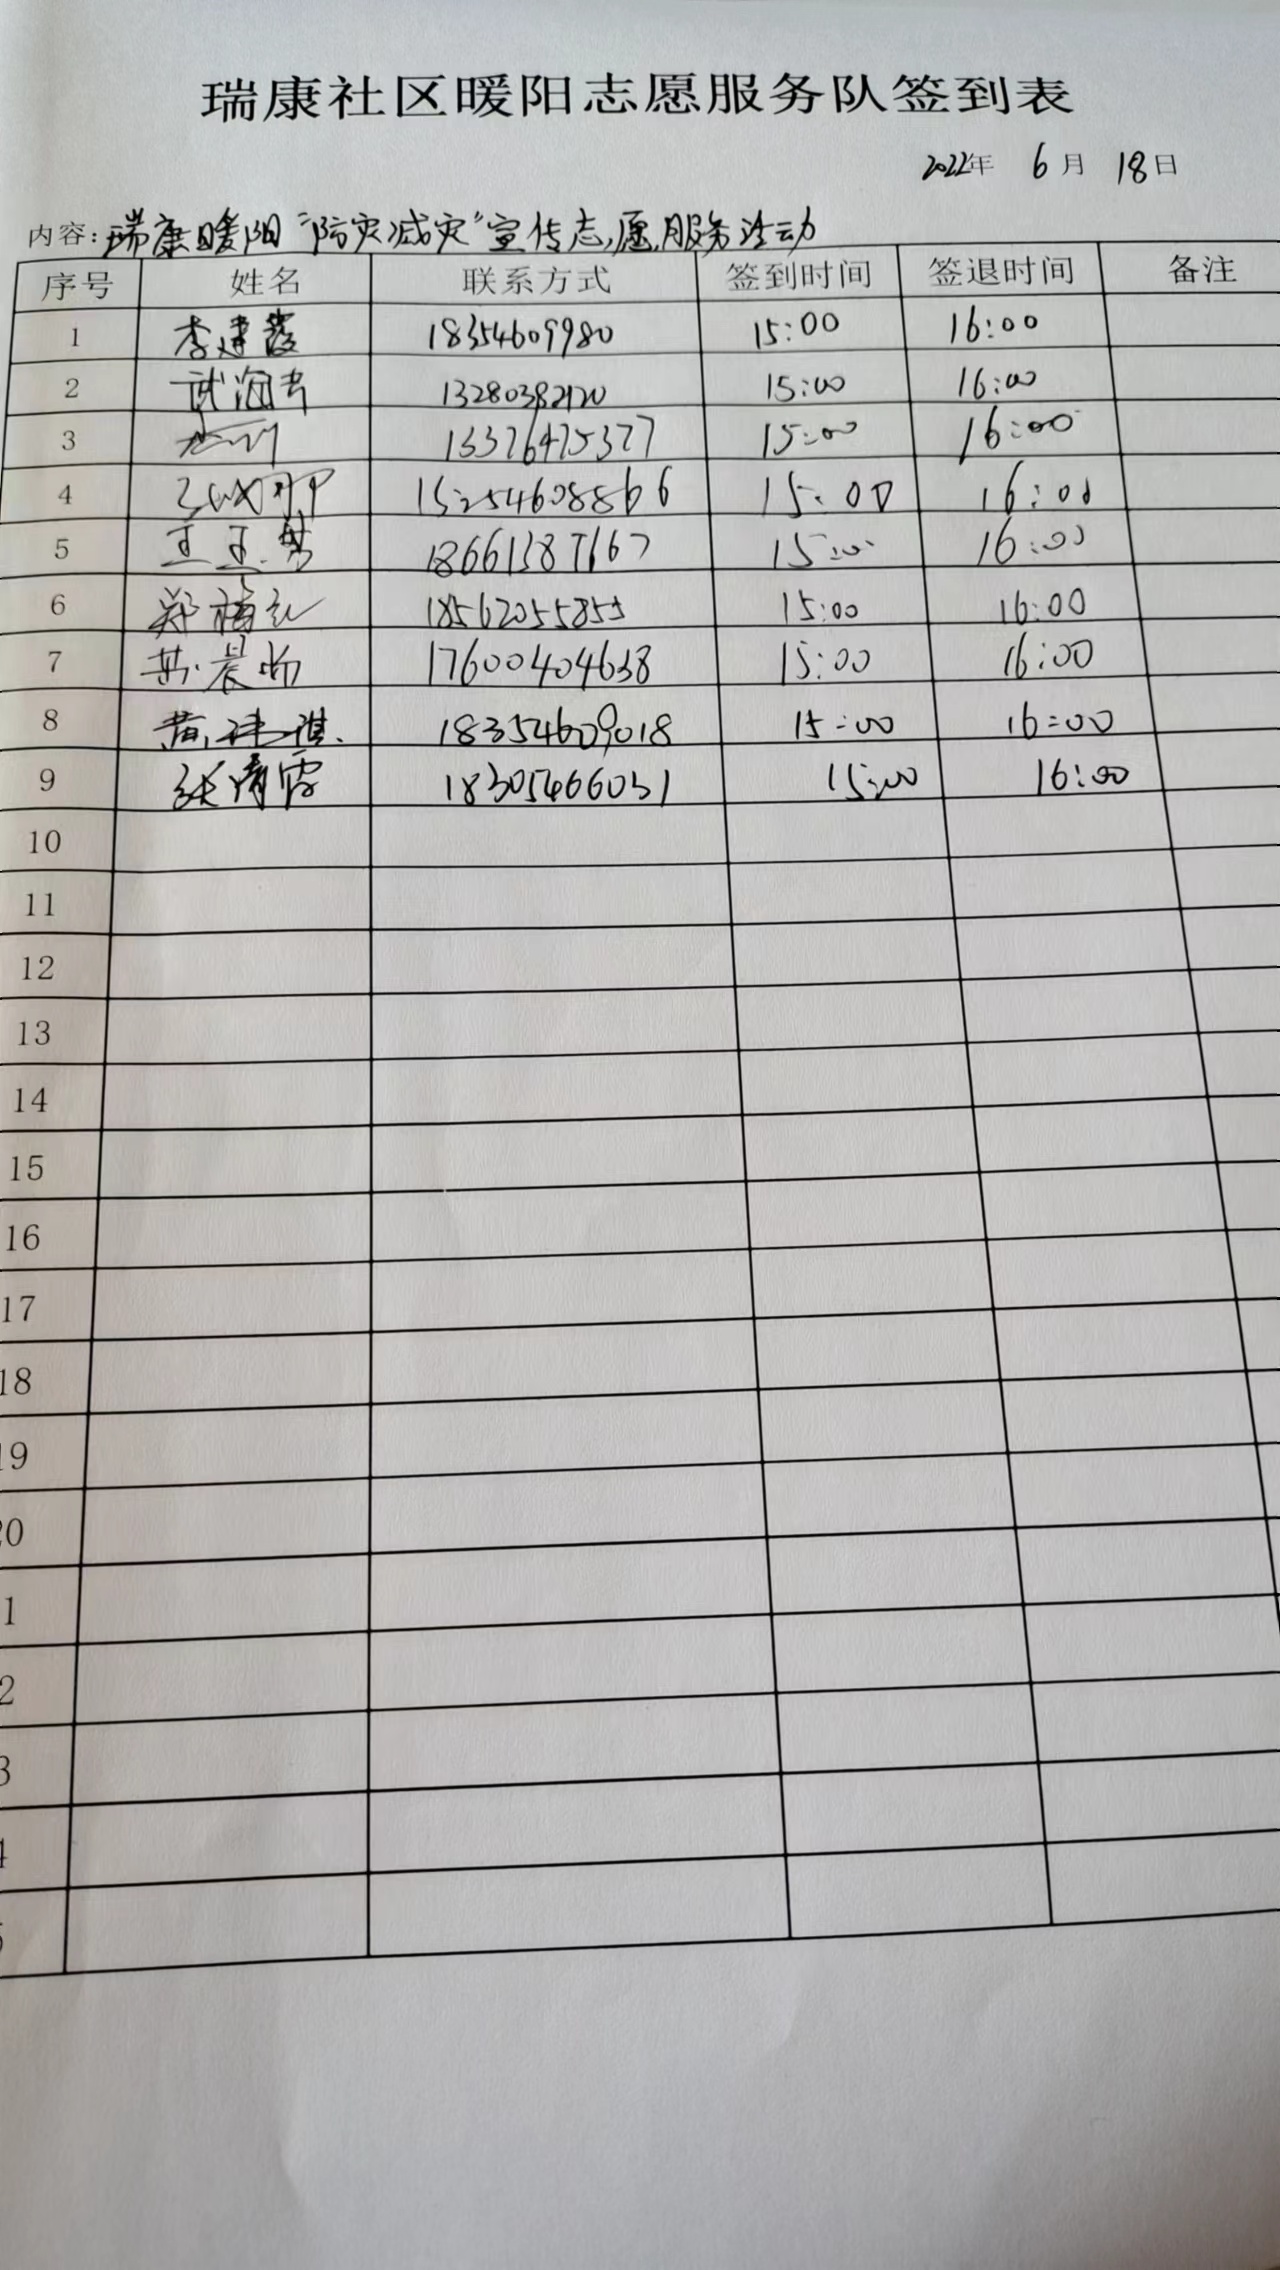 瑞康社区暖阳志愿服务队签到表
2022年 6月 18日
内容：瑞康暖阳“防灾减灾”宣传志愿服务活动
序号 姓名 联系方式 签到时间 签退时间 备注
1 李建霞 18354609980 15:00 16:00
2 武海青 13280382120 15:00 16:00
3 13376475377 15:00 16:00
4 15254608866 15:00 16:00
5 王玉芳 15:00 16:00
6 郑梅红 18562055855 15:00 16:00
7 晨 17600404638 15:00 16:00
8 黄建琪 18354609018 15:00 16:00
9 张清霞 18305466031 15:00 16:00
10
11
12
13
14
15
16
17
18
19
20
1
2
3
4
5